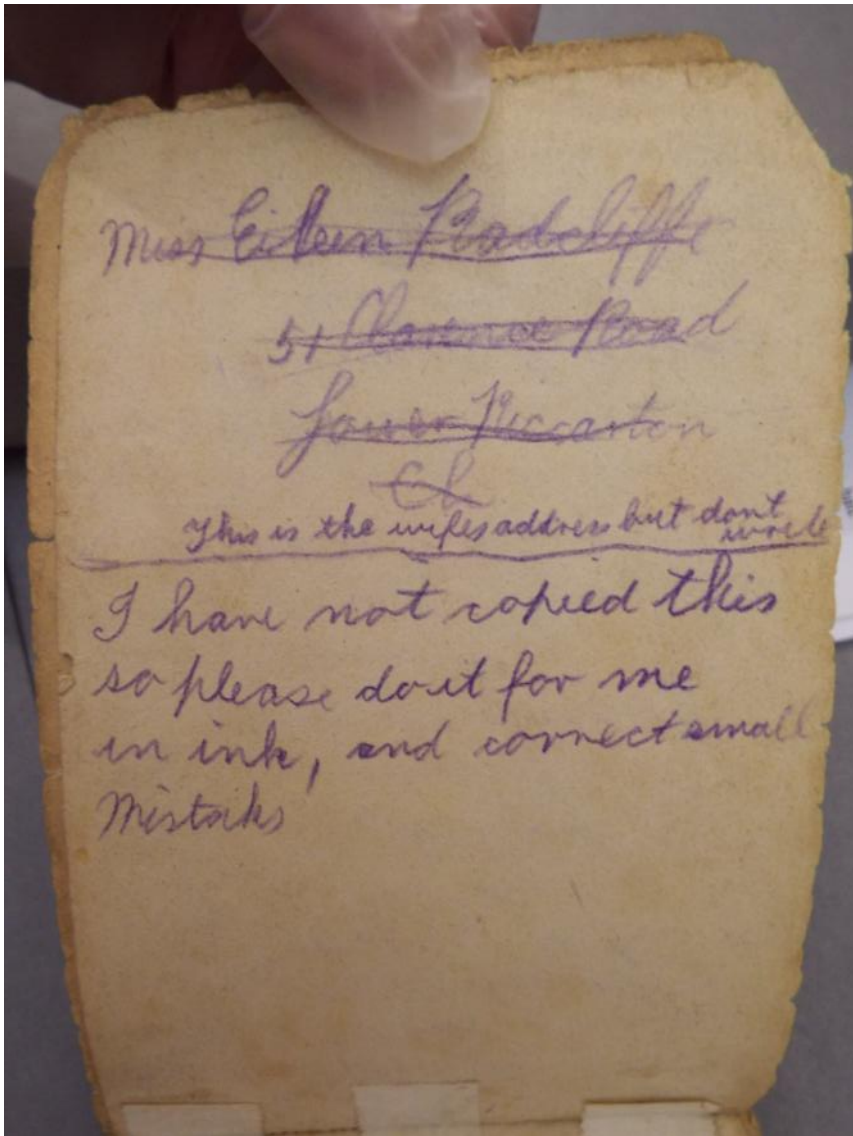 Miss Eileen Radcliffe
51 Clarence Road
Lower Riccarton
Ch
This is the wifes address but dont
write
I have not copied this
so please do it for me
in ink, and correct small
Mistaks